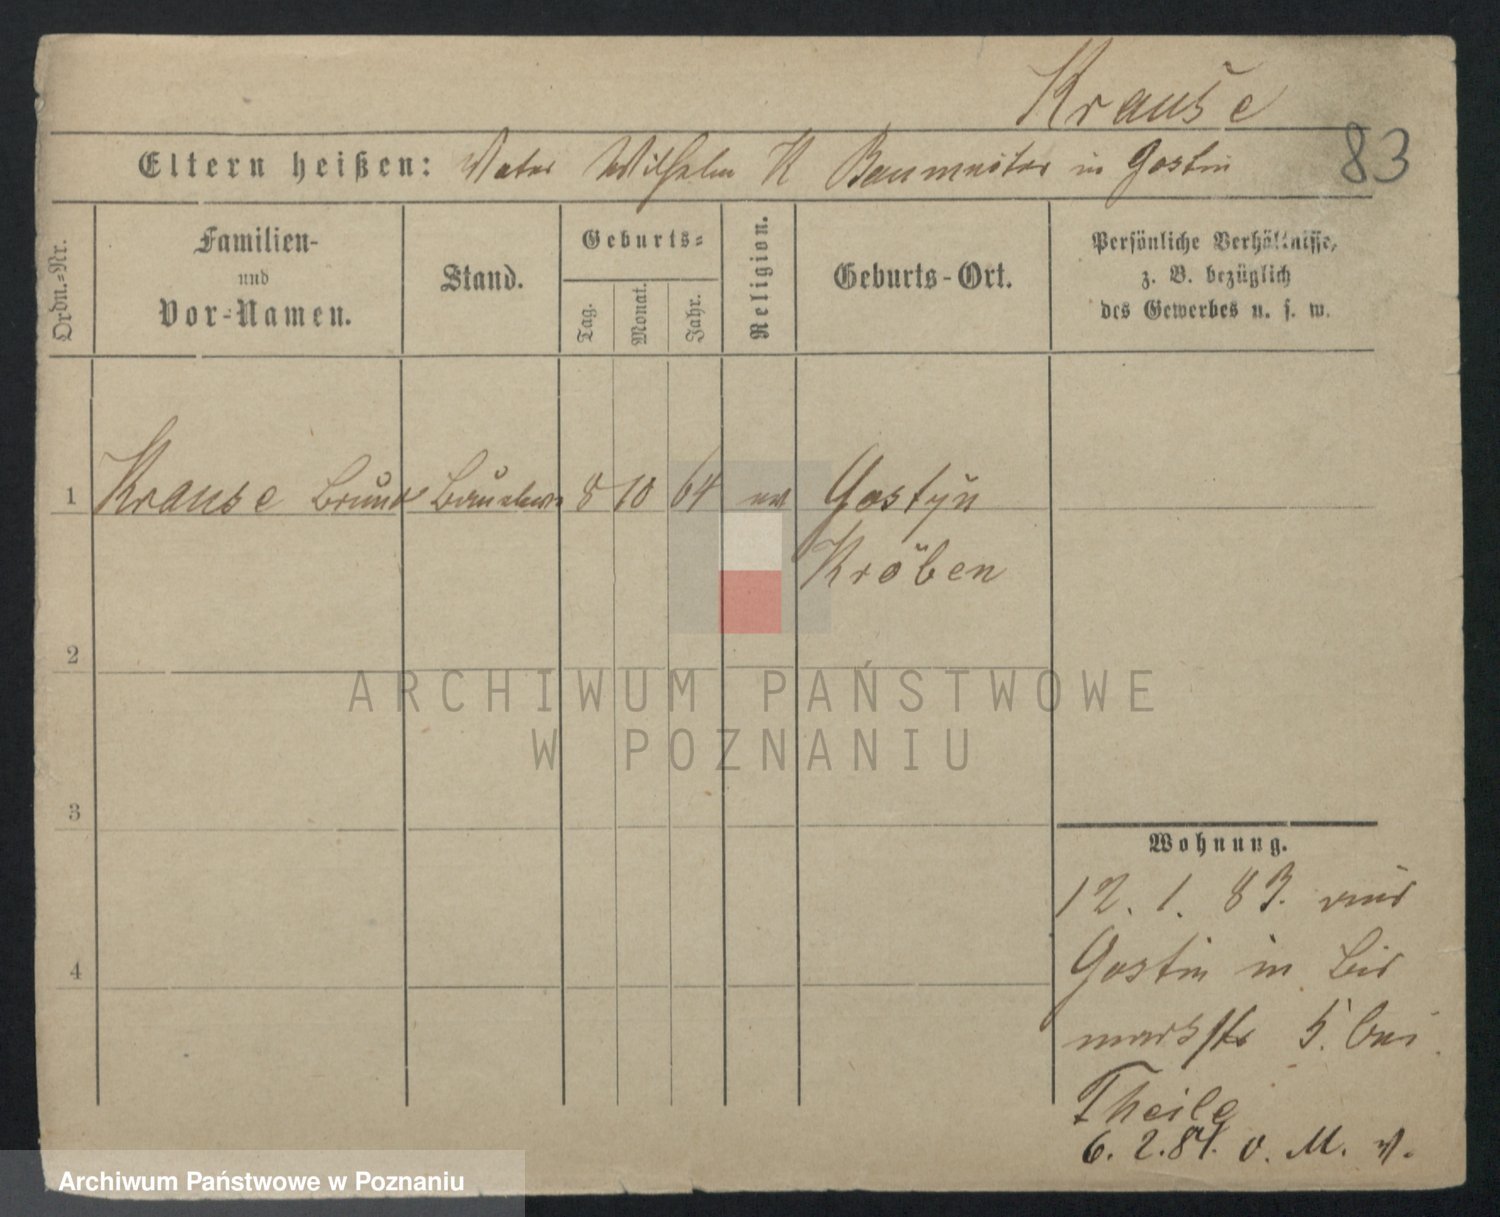 Krause
83
Eltern heißen: Vater Wilhelm K Baumeister in Gostin
Ordn.-Nr.
Familien-
und
Vor-Namen.
Stand.
Geburts-
Tag.
Monat.
Jahr.
Religion.
Geburts-Ort.
Persönliche Verhältnisse,
z. B. bezüglich
des Gewerbes u. s. w.
1 Krause Bruno 8 10 64 ev Gostyn
Kröben
2
3
4
Wohnung.
12. 1. 83. aus
Gostin in Bis
markstr 5. bei
Theile
6. 2. 84. v. M. v.
ARCHIWUM PAŃSTWOWE
W POZNANIU
Archiwum Państwowe w Poznaniu